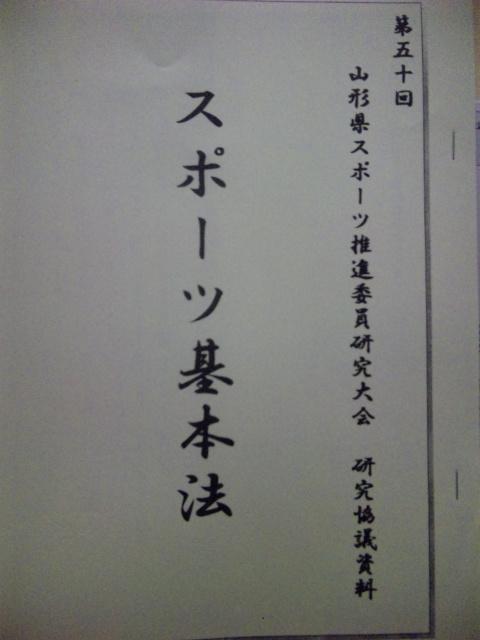 第五十回
山形県スポーツ推進委員研究大会　研究協議資料
スポーツ基本法